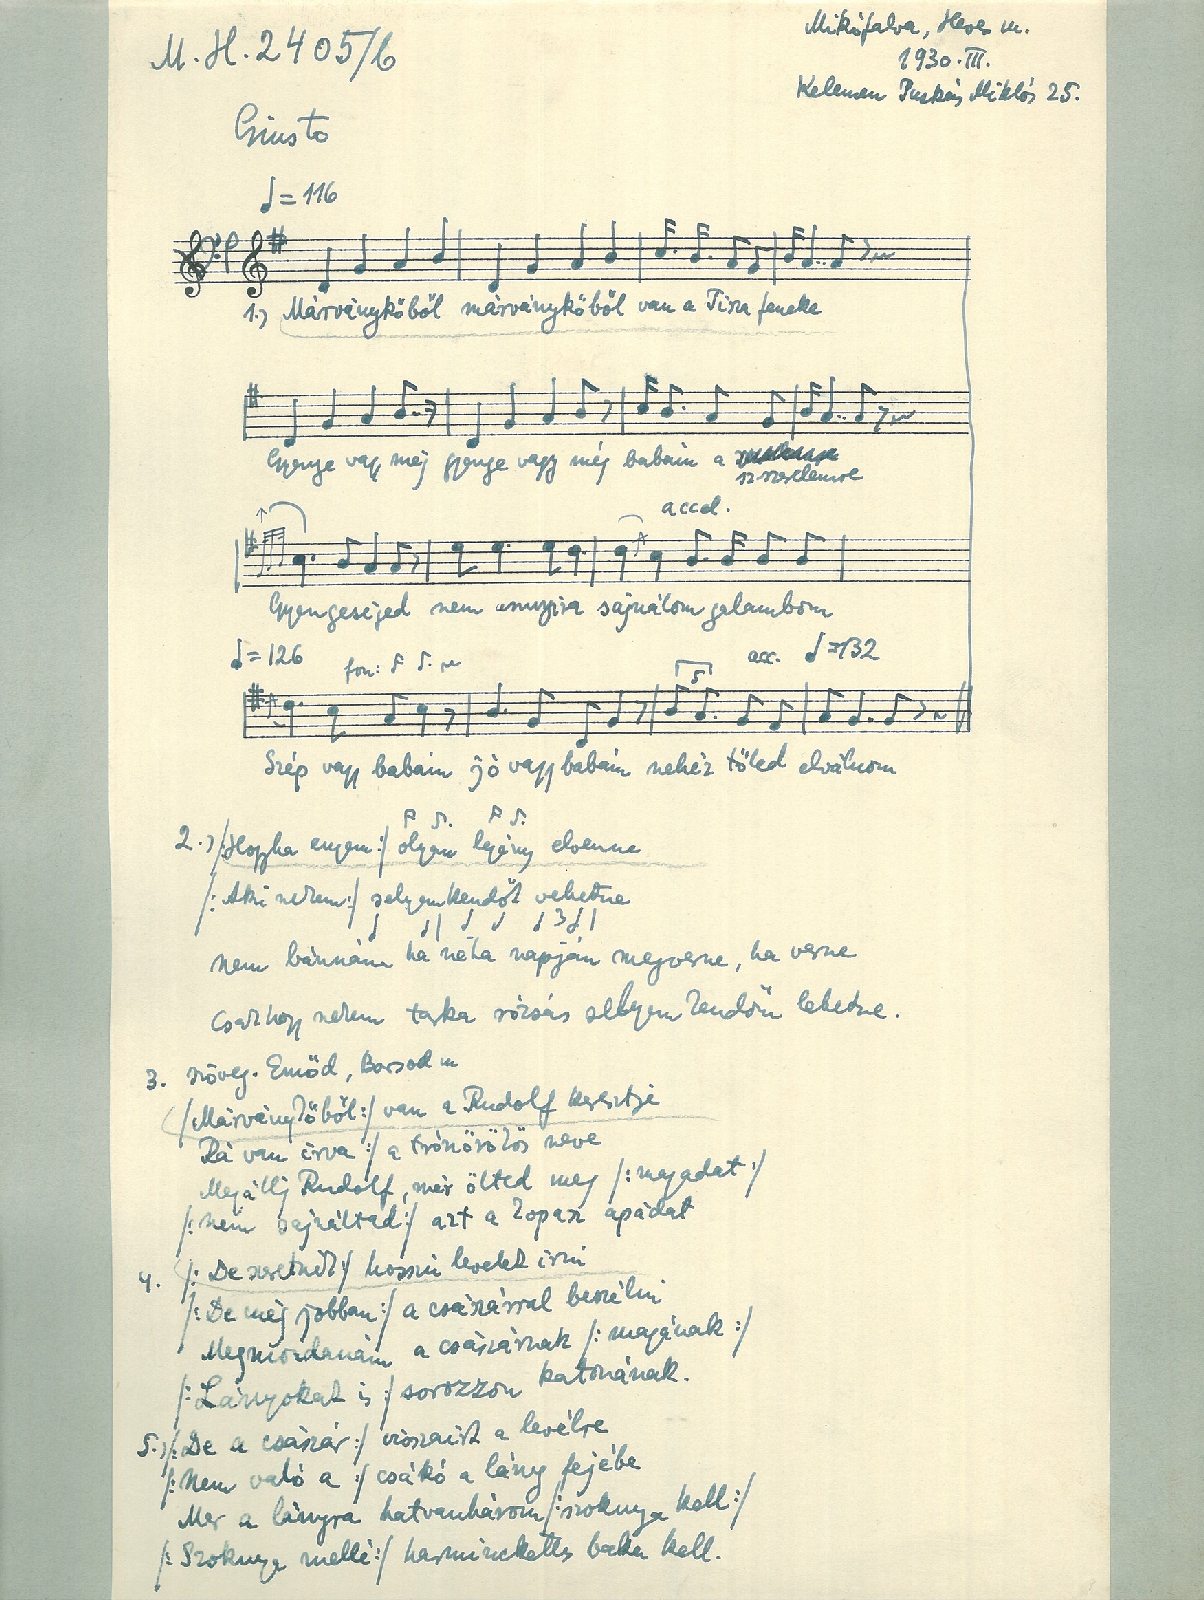 M. H. 2405/b
Mikófalva, Heves m.
1930. III.
Kelemen Puskás Miklós 25.
Giusto
= 116
1.) Márványkőből márványkőből van a Tisza feneke
Gyenge vagy még gyenge vagy még babám a
szerelemre
accel.
Gyengeséged nem annyira sajnálom galambom
= 126
fon:
acc.
= 132
5
Szép vagy babám jó vagy babám nehéz tőled elválnom
2.) /:Hogyha engem:/ olyan legény elvenne
/: Aki nekem:/ selyemkendőt vehetne
nem bánnám ha néha napján megverne, ha verne
Csakhogy nekem tarka rózsás selyem kendőm lehetne.
3. szöveg. Emőd, Borsod m
/Márványkőből:/ van a Rudolf keresztje
Rá van írva :/ a trónörökös neve
Megállj Rudolf, mér ölted meg /: magadat :/
/: nem sajnáltad:/ azt a kopasz apádat
4. /: De szeretnék:/ hosszú levelet írni
/: De még jobban:/ a császárral beszélni
Megmondanám a császárnak /: magának :/
/: Lányokat is :/ sorozzon katonának.
5.) /: De a császár :/ visszaírt a levélre
/: Nem való a :/ csákó a lány fejébe
Mer a lányra hatvanhárom /: szoknya kell :/
/: Szoknya mellé :/ harminckettes baka kell.